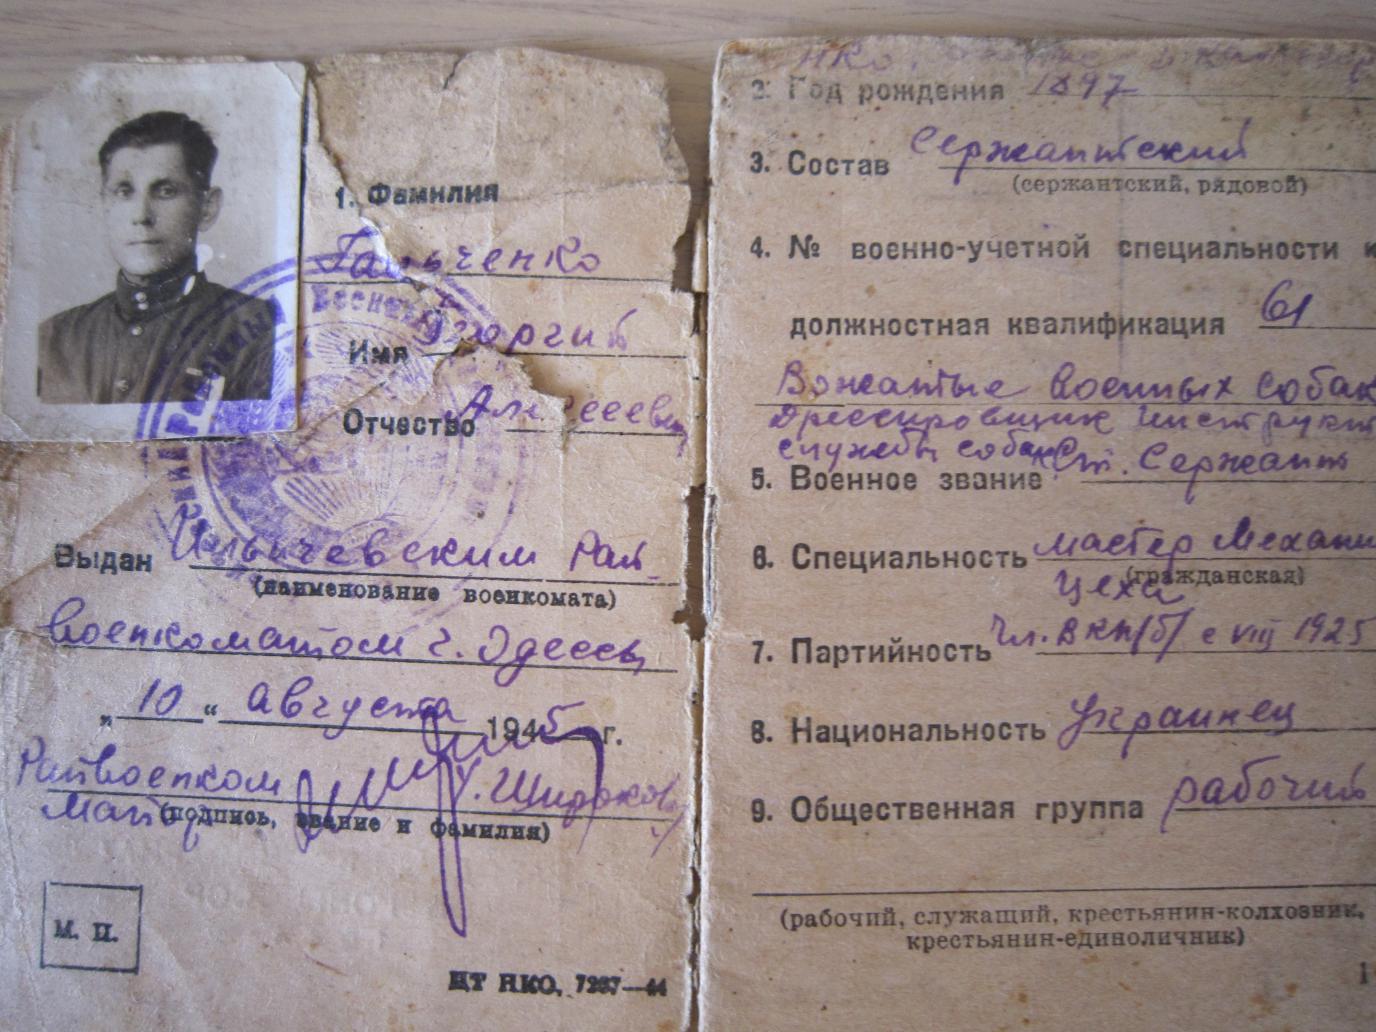 1. Фамилия
Гальченко
Имя Георгий
Отчество Алексеевич
Выдан Ильичевским Рай-
(наименование военкомата)
военкоматом г. Одессы
„10“ августа 1945 г.
Райвоенком
Майор
(подпись, звание и фамилия)
М. П.
ЦТ НКО. 7237—44
2. Год рождения 1897
3. Состав Сержантский
(сержантский, рядовой)
4. № военно-учетной специальности и
должностная квалификация 61
Вожатые военных собак
Дрессировщик Инструкт
службы собак
5. Военное звание Ст. Сержант
6. Специальность мастер Механи
(гражданская)
цеха
7. Партийность Чл. ВКП(б) с VIII 1925
8. Национальность Украинец
9. Общественная группа рабочий
(рабочий, служащий, крестьянин-колхозник,
крестьянин-единоличник)
1